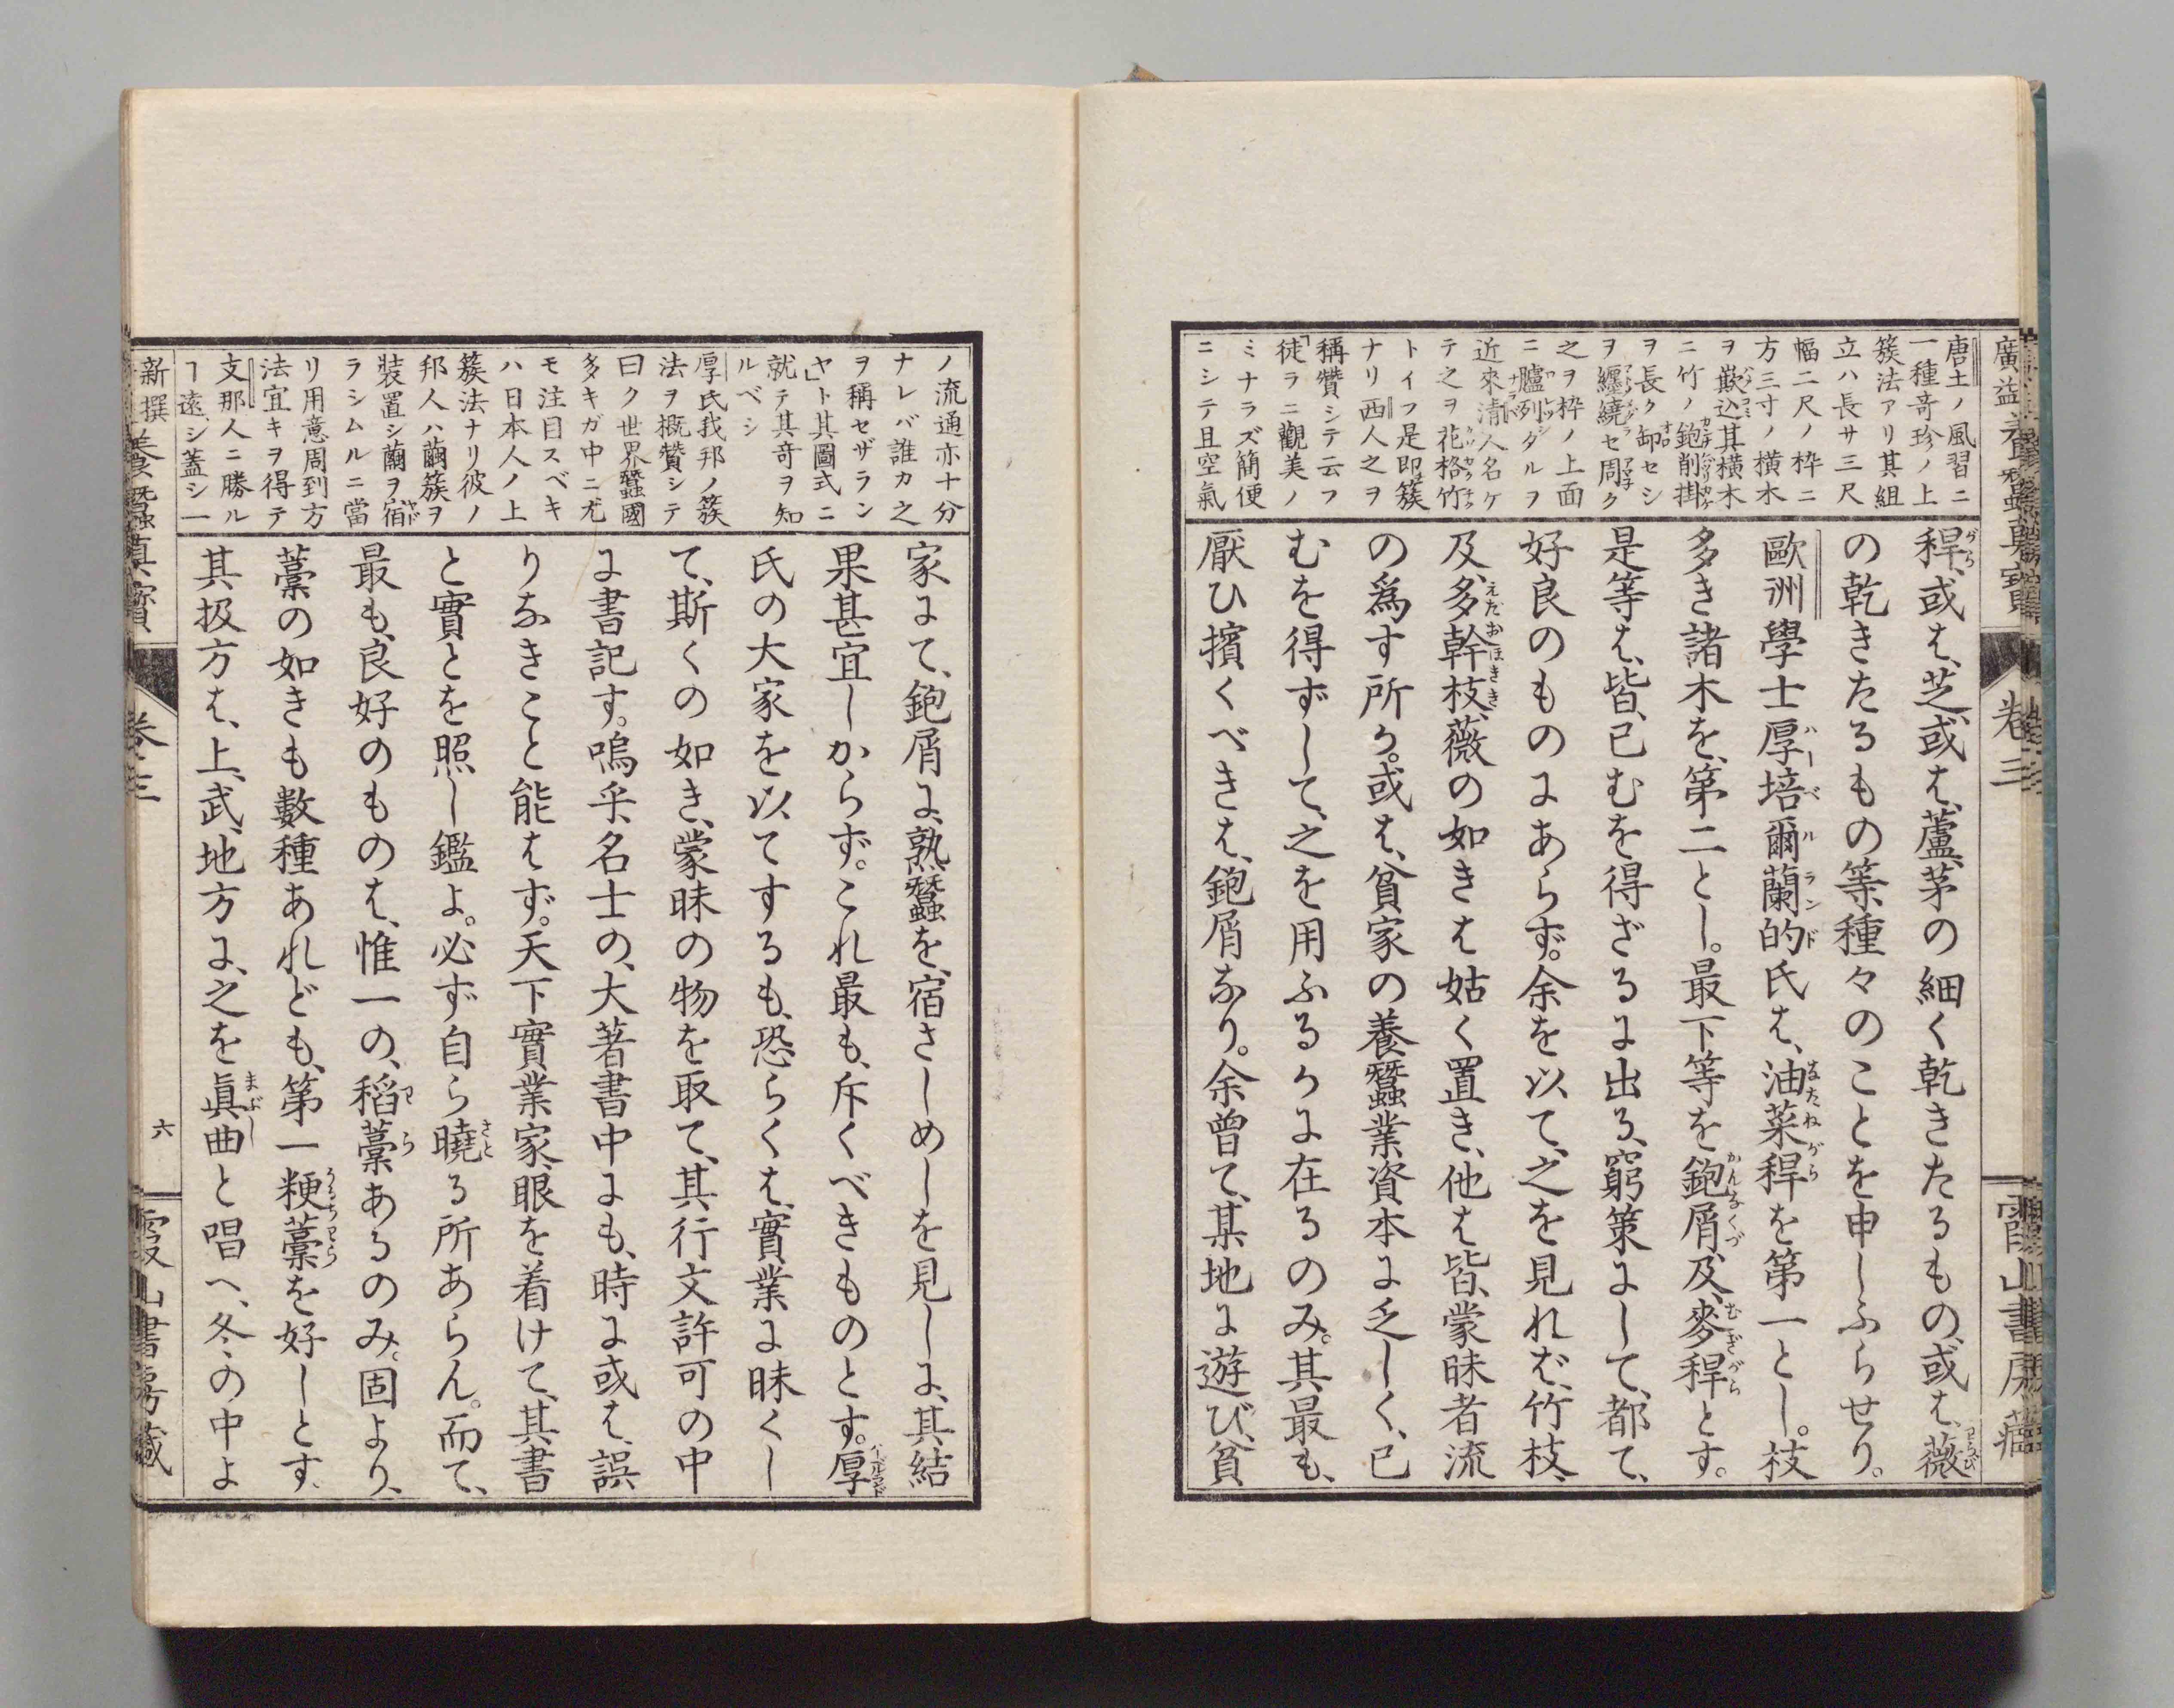 唐土ノ風習ニ
一種奇珍ノ上
簇法アリ其組
立ハ長サ三尺
幅二尺ノ枠ニ
方三寸ノ横木
ヲ歉込其横木
ニ竹ノ鉋削掛
ヲ長ク卸セシ
ヲ纒繞セ周ク
之ヲ枠ノ上面
ニ臚列シダルヲ
近來清人名ケ
テ之ヲ花格竹
トイフ是即簇
ナリ西人之ヲ
稱贊シテ云フ
「徒ラニ觀美ノ
ミナラズ簡便
ニシテ且空氣
稈、或は、芝、或は、蘆、茅の細く乾きたるもの、或は、薇
の乾きたるもの等、種々のことを申しふらせり。
歐洲學士厚培爾蘭的氏は、油菜稈を第一とし。枝
多き諸木を、第二とし。最下等を鉋屑、及、麥稈とす。
是等は、皆、已むを得ざるに出る、窮策にして、都て、
好良のものにあらず。余を以て、之を見れば、竹枝、
及、多幹枝、薇の如きは姑く置き、他は皆、蒙昧者流
の爲す所か。或は、貧家の養蠶業資本に乏しく、已
むを得ずして、之を用ふるかに在るのみ。其最も、
厭ひ擯くべきは、鉋屑なり。余曽て、某地に遊び、貧
ノ流通亦十分
ナレバ誰カ之
ヲ稱セザラン
ヤ」ト其圖式ニ
就テ其奇ヲ知
ルベシ
厚氏我邦ノ簇
法ヲ概贊シテ
曰ク世界蠶國
多キガ中ニ尤
モ注目スベキ
ハ日本人ノ上
簇法ナリ彼ノ
邦人ハ繭簇ヲ
裝置シ繭ヲ宿
ラシムルニ當
リ用意周到方
法宜キヲ得テ
支那人ニ勝ル
ヿ遠シ蓋シ一
家にて、鉋屑に、熟蠶を、宿さしめしを見しに、其結
果甚宜しからず。これ最も、斥くべきものとす。厚
氏の大家を以てするも、恐らくは、實業に昧くし
て、斯くの如き、蒙昧の物を取て、其行文許可の中
に書記す。嗚乎、名士の、大著書中にも、時に或は、誤
りなきこと能はず。天下實業家、眼を着けて、其書
と實とを照し鑑よ。必ず自ら曉る所あらん。而て、
最も、良好のものは、惟一の、稻藁あるのみ。固より、
藁の如きも數種あれども、第一粳藁を好しとす、
其扱方は、上、武、地方に、之を眞曲と唱へ、冬の中よ
新撰養蠶眞寶
卷三
六